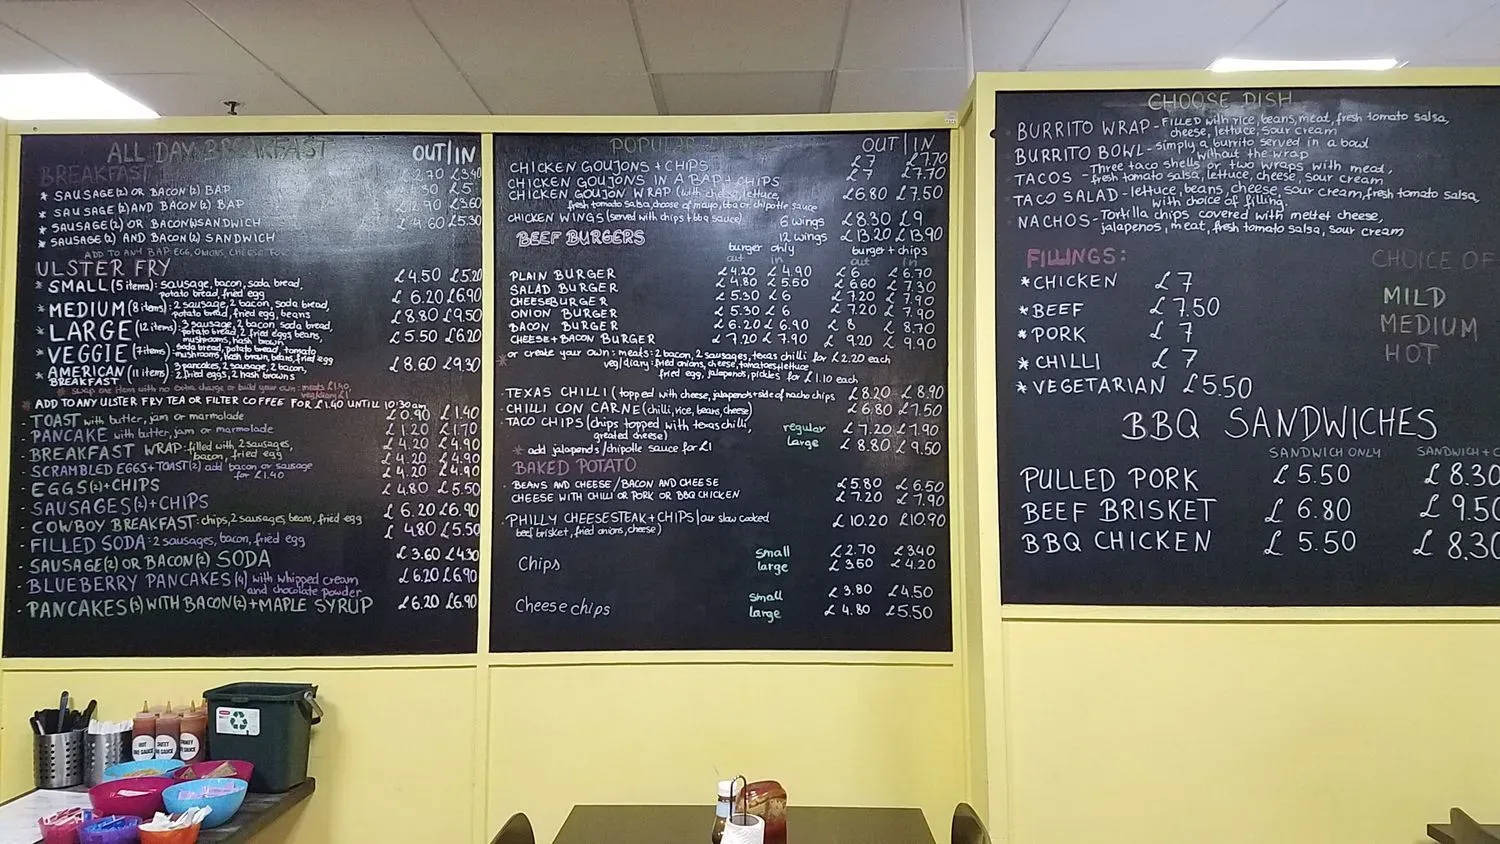 ALL DAY BREAKFAST OUT|IN
BREAKFAST
* SAUSAGE(2) OR BACON(2) BAP
* SAUSAGE(2) AND BACON(2) BAP
* SAUSAGE(2) OR BACON(2) SANDWICH
* SAUSAGE(2) AND BACON(2) SANDWICH £4.60 £5.30
ADD TO ANY BAP: EGG, ONIONS, CHEESE FOR
ULSTER FRY
* SMALL (5 items): sausage, bacon, soda bread, £4.50 £5.20
potato bread, fried egg
* MEDIUM (8 items): 2 sausage, 2 bacon, soda bread, £6.20 £6.90
potato bread, fried egg, beans
* LARGE (12 items): 3 sausage, 2 bacon, soda bread, £8.80 £9.50
potato bread, 2 fried eggs, beans,
mushrooms, hash brown
* VEGGIE (7 items): soda bread, potato bread, tomato £5.50 £6.20
mushrooms, hash brown, beans, fried egg
* AMERICAN (11 items): 3 pancakes, 2 sausage, 2 bacon, £8.60 £9.30
BREAKFAST 2 fried eggs, 2 hash browns
* swap one item with no extra charge or build your own: meats £1.40,
veg/diary £1
* ADD TO ANY ULSTER FRY TEA OR FILTER COFFEE FOR £1.40 UNTIL 10:30am
- TOAST with butter, jam or marmolade £0.90 £1.40
- PANCAKE with butter, jam or marmolade £1.20 £1.70
- BREAKFAST WRAP: filled with 2 sausages, £4.20 £4.90
bacon, fried egg
- SCRAMBLED EGGS + TOAST(2) add bacon or sausage £4.20 £4.90
for £1.40
- EGGS(2) + CHIPS £4.20 £4.90
- SAUSAGES(2) + CHIPS £4.80 £5.50
- COWBOY BREAKFAST: chips, 2 sausages, beans, fried egg £6.20 £6.90
- FILLED SODA: 2 sausages, bacon, fried egg £4.80 £5.50
- SAUSAGE(2) OR BACON(2) SODA £3.60 £4.30
- BLUEBERRY PANCAKES (4) with whipped cream £6.20 £6.90
and chocolate powder
- PANCAKES(3) WITH BACON(2) + MAPLE SYRUP £6.20 £6.90
POPULAR OUT|IN
CHICKEN GOUJONS + CHIPS £7 £7.70
CHICKEN GOUJONS IN A BAP + CHIPS £7 £7.70
CHICKEN GOUJON WRAP (with cheese, lettuce, £6.80 £7.50
fresh tomato salsa, choose of mayo, bbq or chipotle sauce
CHICKEN WINGS (served with chips + bbq sauce) 6 wings £8.30 £9
12 wings £13.20 £13.90
BEEF BURGERS
burger only burger + chips
out in out in
PLAIN BURGER £4.20 £4.90 £6 £6.70
SALAD BURGER £4.80 £5.50 £6.60 £7.30
CHEESEBURGER £5.30 £6 £7.20 £7.90
ONION BURGER £5.30 £6 £7.20 £7.90
BACON BURGER £6.20 £6.90 £8 £8.70
CHEESE + BACON BURGER £7.20 £7.90 £9.20 £9.90
* or create your own: meats: 2 bacon, 2 sausages, texas chilli for £2.20 each
veg/diary: fried onions, cheese, tomatoes + lettuce
fried egg, jalapenos, pickles for £1.10 each
- TEXAS CHILLI (topped with cheese, jalapenos + side of nacho chips £8.20 £8.90
- CHILLI CON CARNE (chilli, rice, beans, cheese) £6.80 £7.50
- TACO CHIPS (chips topped with texas chilli, regular £7.20 £7.90
greated cheese) large £8.80 £9.50
* add jalapenos/chipotle sauce for £1
BAKED POTATO
- BEANS AND CHEESE/BACON AND CHEESE £5.80 £6.50
CHEESE WITH CHILLI OR PORK OR BBQ CHICKEN £7.20 £7.90
- PHILLY CHEESESTEAK + CHIPS (our slow cooked £10.20 £10.90
beef brisket, fried onions, cheese)
Chips small £2.70 £3.40
large £3.50 £4.20
Cheese chips small £3.80 £4.50
large £4.80 £5.50
CHOOSE DISH
BURRITO WRAP - FILLED with rice, beans, meat, fresh tomato salsa,
cheese, lettuce, sour cream
BURRITO BOWL - simply a burrito served in a bowl
without the wrap
TACOS - Three taco shells or two wraps with meat,
fresh tomato salsa, lettuce, cheese, sour cream
TACO SALAD - lettuce, beans, cheese, sour cream, fresh tomato salsa
with choice of filling.
NACHOS - Tortilla chips covered with meltet cheese,
jalapenos, meat, fresh tomato salsa, sour cream
FILLINGS: CHOICE OF
* CHICKEN £7
* BEEF £7.50
* PORK £7
* CHILLI £7
* VEGETARIAN £5.50
MILD
MEDIUM
HOT
BBQ SANDWICHES
SANDWICH ONLY SANDWICH + C
PULLED PORK £5.50 £8.30
BEEF BRISKET £6.80 £9.50
BBQ CHICKEN £5.50 £8.30
HOT
SAUCE
SAUCE